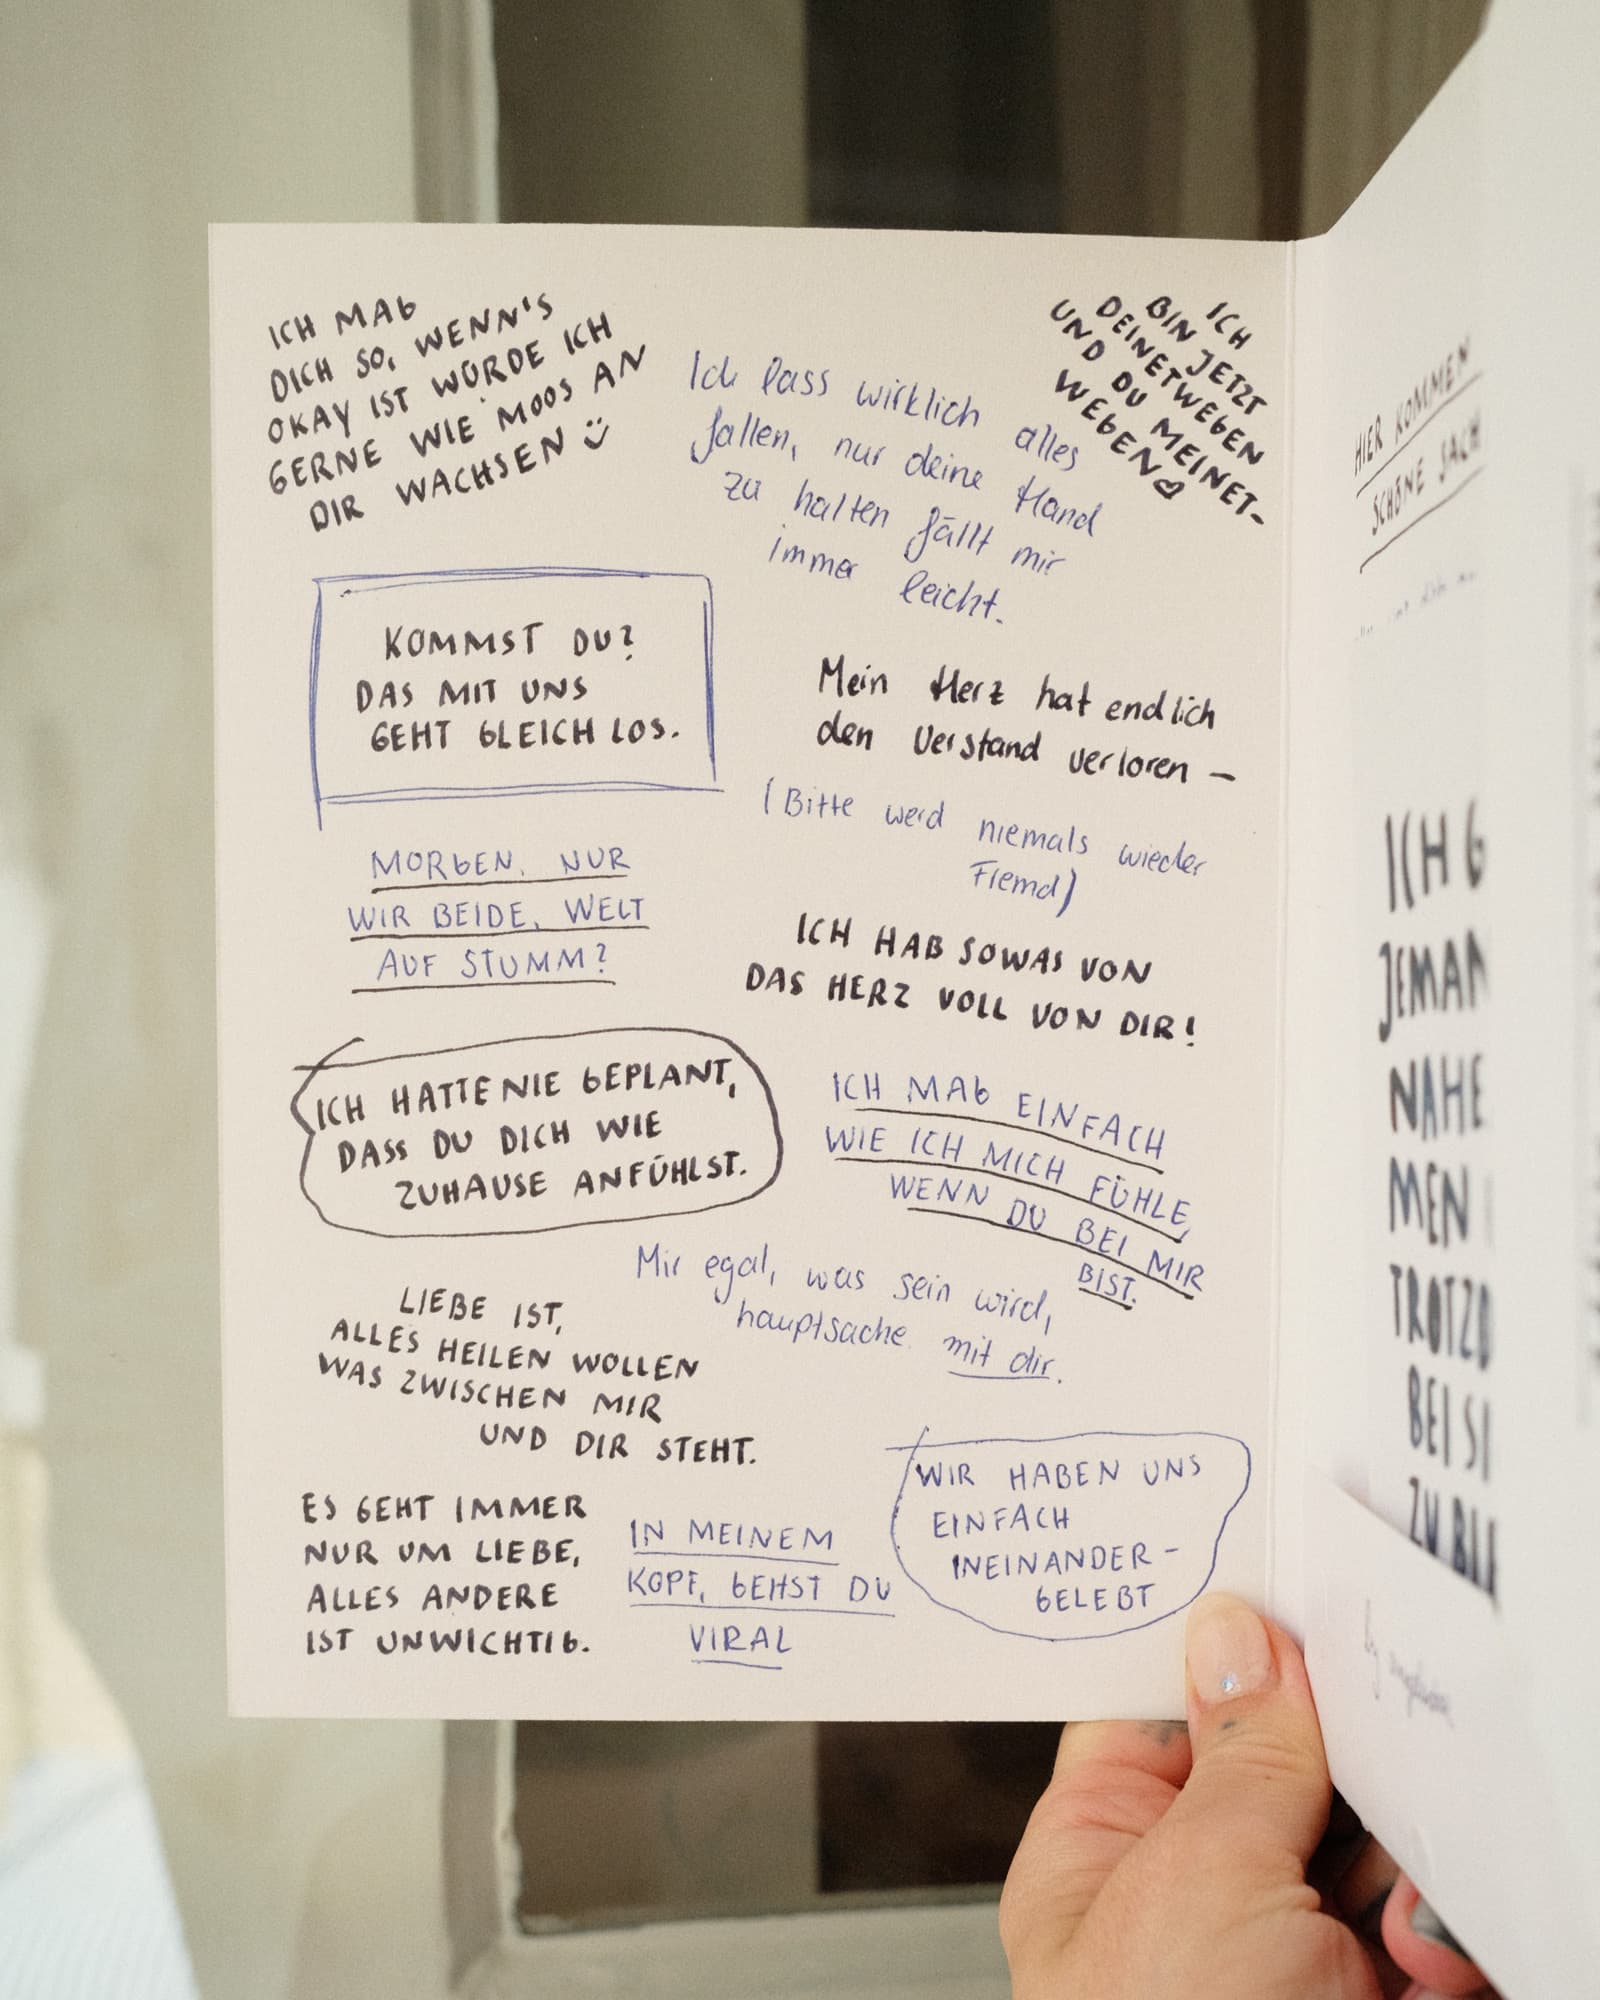 ICH MAG
DICH SO, WENN'S
OKAY IST WÜRDE ICH
GERNE WIE MOOS AN
DIR WACHSEN
Ich lass wirklich alles
fallen, nur deine Hand
zu halten fällt mir
immer leicht.
ICH
BIN JETZT
DEINETWEGEN
UND DU MEINET-
WEGEN♡
KOMMST DU?
DAS MIT UNS
GEHT GLEICH LOS.
Mein Herz hat endlich
den Verstand verloren –
(Bitte werd niemals wieder
Fremd)
MORGEN, NUR
WIR BEIDE, WELT
AUF STUMM?
ICH HAB SOWAS VON
DAS HERZ VOLL VON DIR!
ICH HATTE NIE GEPLANT,
DASS DU DICH WIE
ZUHAUSE ANFÜHLST.
ICH MAG EINFACH
WIE ICH MICH FÜHLE,
WENN DU BEI MIR
BIST.
Mir egal, was sein wird,
hauptsache mit dir.
LIEBE IST,
ALLES HEILEN WOLLEN
WAS ZWISCHEN MIR
UND DIR STEHT.
ES GEHT IMMER
NUR UM LIEBE,
ALLES ANDERE
IST UNWICHTIG.
IN MEINEM
KOPF, GEHST DU
VIRAL
WIR HABEN UNS
EINFACH
INEINANDER-
GELEBT
HIER KOMMEN
SCHÖNE SACH
ICH G
JEMAN
NAHE
MEN
TROTZD
BEI SI
ZU BLE
by